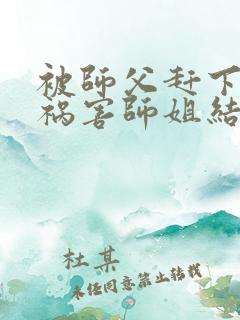 被師父赶下
祸害師姐結
杜某
未经同意禁止转载